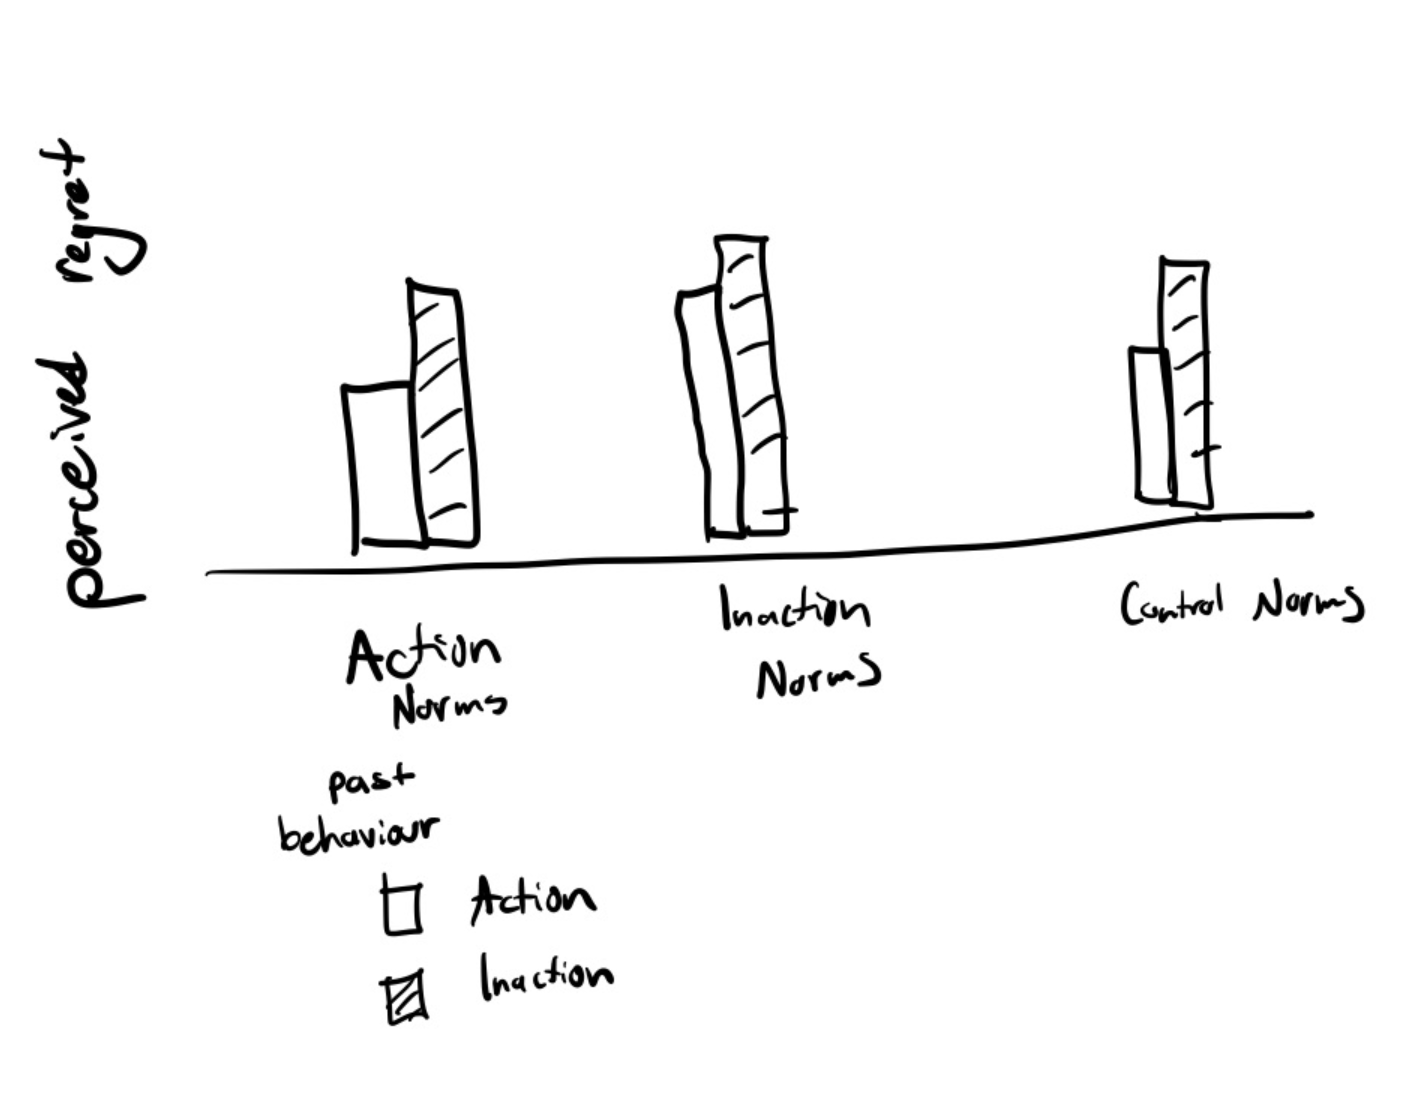 perceived regret
Action
Norms
Inaction
Norms
Control Norms
past
behaviour
Action
Inaction